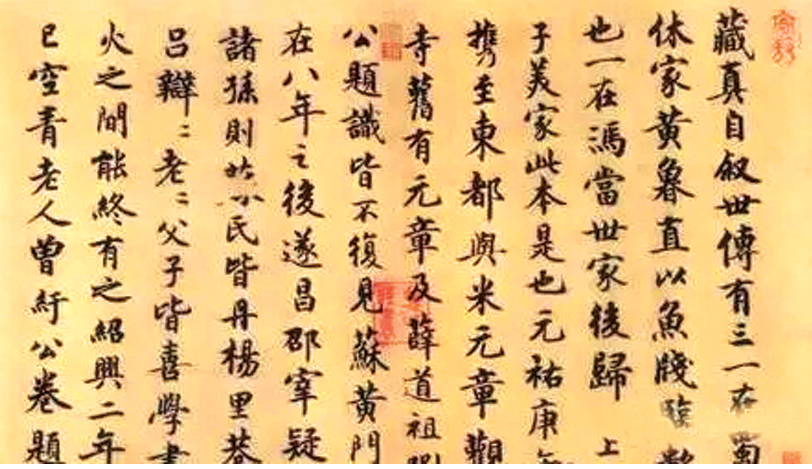 藏真自叙世傳有三一在蜀
休家黃魯直以魚牋臨數
也一在馮當世家後歸上
子美家此本是也元祐庚
攜至東都與米元章觀
寺舊有元章及薛道祖劉
公題識皆不復見蘇黃門
在八年之後遂昌邵宰疑
諸孫則氏皆丹楊里巷
呂辯〻老〻父子皆喜學書
火之間能終有之紹興二年
已空青老人曾紆公卷題